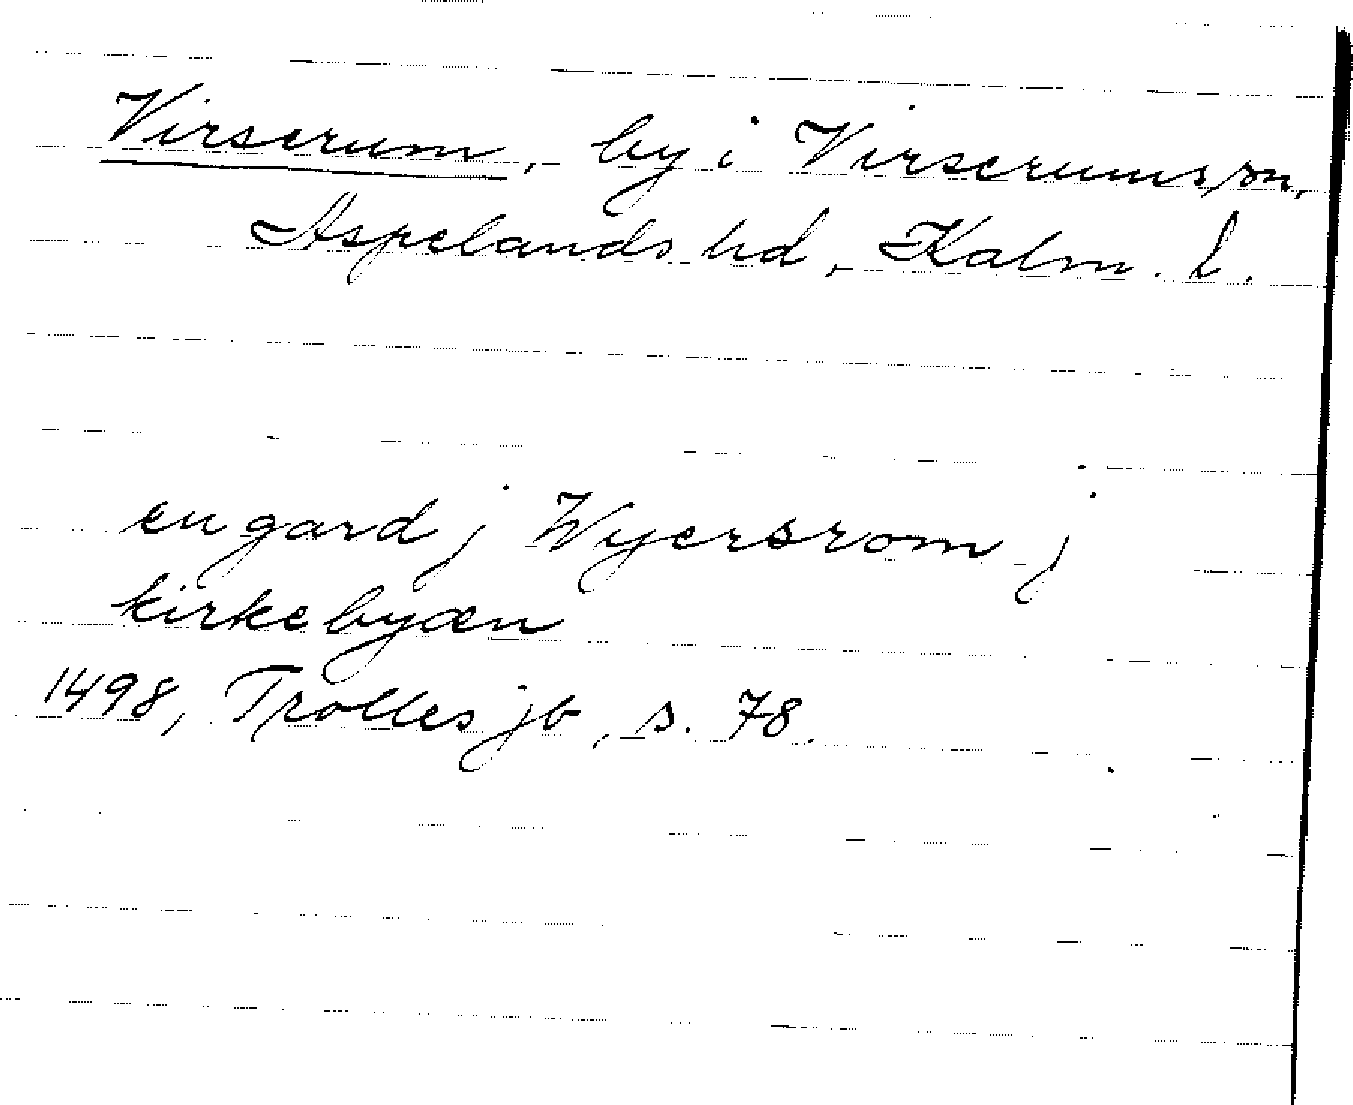 Virserum, by i Virserums sn,
Aspelands hd, Kalm. l.
en gard j Wyersrom j
kirkebyæn
1498, Trolles jb, s. 78.